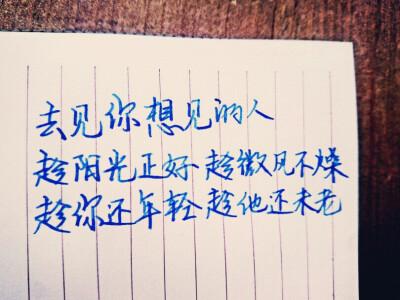 去见你想见的人
趁阳光正好 趁微风不燥
趁你还年轻 趁他还未老